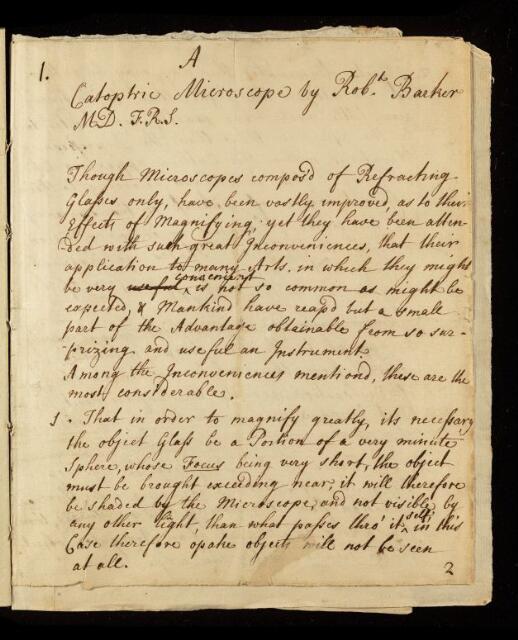 1.
A
Catoptric Microscope by Robt. Barker
MD. F.R.S.
Though Microscopes compos'd of Refracting
Glasses only, have been vastly improved, as to their
Effects of Magnifying; yet they have been atten-
ded with such great Inconveniences, that their
application to many Arts, in which they might
be very useful convenient is not so common as might be
expected, & Mankind have reap'd but a small
part of the Advantage obtainable from so sur-
prizing and useful an Instrument.
Among the Inconveniences mention'd, these are the
most considerable.
1. That in order to magnify greatly, its necessary
the object Glass be a Portion of a very minute
Sphere, whose Focus being very short, the object
must be brought exceeding near; it will therefore
be shaded by the Microscope, and not visible by
any other light, than what passes thro' it self; in this
Case therefore opake objects will not be seen
at all.
2